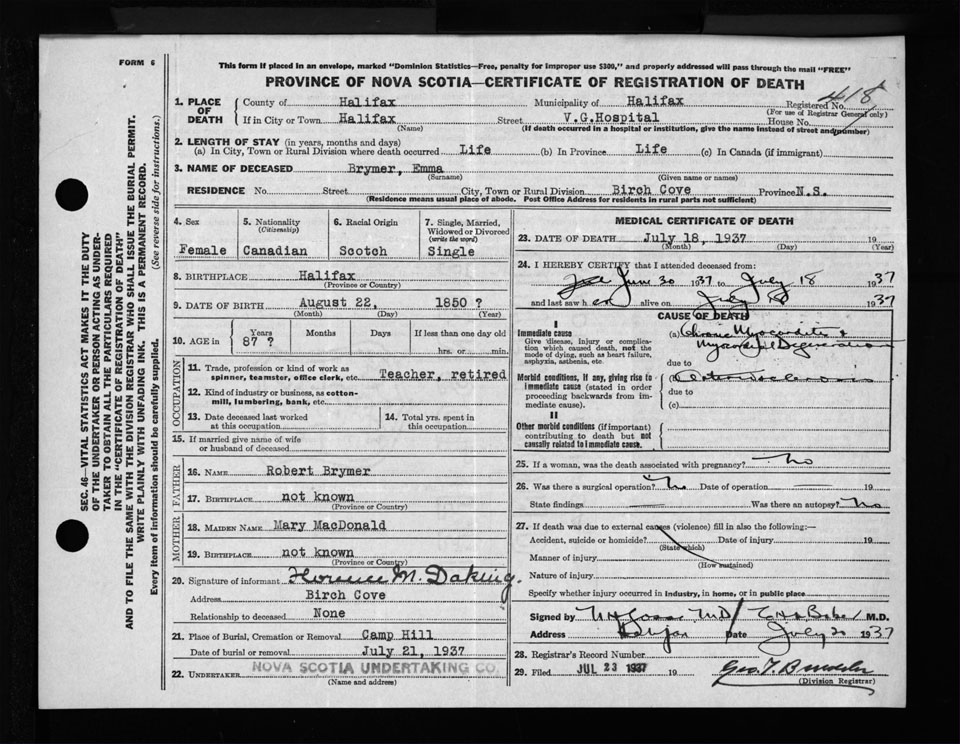 FORM 6
This form if placed in an envelope, marked "Dominion Statistics—Free, penalty for improper use $300," and properly addressed will pass through the mail "FREE"
PROVINCE OF NOVA SCOTIA—CERTIFICATE OF REGISTRATION OF DEATH
SEC. 46—VITAL STATISTICS ACT MAKES IT THE DUTY
OF THE UNDERTAKER OR PERSON ACTING AS UNDER-
TAKER TO OBTAIN ALL THE PARTICULARS REQUIRED
IN THE "CERTIFICATE OF REGISTRATION OF DEATH"
AND TO FILE THE SAME WITH THE DIVISION REGISTRAR WHO SHALL ISSUE THE BURIAL PERMIT.
WRITE PLAINLY WITH UNFADING INK. THIS IS A PERMANENT RECORD.
Every item of information should be carefully supplied. (See reverse side for instructions.)
1. PLACE OF DEATH
County of Halifax Municipality of Halifax Registered No. 418
(For use of Registrar General only)
If in City or Town Halifax Street V.G.Hospital House No.
(Name) (If death occurred in a hospital or institution, give the name instead of street and number)
2. LENGTH OF STAY (in years, months and days)
(a) In City, Town or Rural Division where death occurred Life (b) In Province Life (c) In Canada (if immigrant)
3. NAME OF DECEASED Brymer, Emma
(Surname) (Given name or names)
RESIDENCE No. Street City, Town or Rural Division Birch Cove Province N.S.
(Residence means usual place of abode. Post Office Address for residents in rural parts not sufficient)
4. Sex
Female
5. Nationality
(Citizenship)
Canadian
6. Racial Origin
Scotch
7. Single, Married,
Widowed or Divorced
(write the word)
Single
8. BIRTHPLACE Halifax
(Province or County)
9. DATE OF BIRTH August 22, 1850 ?
(Month) (Day) (Year)
10. AGE in
Years Months Days If less than one day old
87 ? hrs. or min.
OCCUPATION
11. Trade, profession or kind of work as
spinner, teamster, office clerk, etc. Teacher, retired
12. Kind of industry or business, as cotton-
mill, lumbering, bank, etc.
13. Date deceased last worked
at this occupation
14. Total yrs. spent in
this occupation
15. If married give name of wife
or husband of deceased
FATHER
16. NAME Robert Brymer
17. BIRTHPLACE not known
(Province or County)
MOTHER
18. MAIDEN NAME Mary MacDonald
19. BIRTHPLACE not known
(Province or County)
20. Signature of informant Florence M. Daking.
Address Birch Cove
Relationship to deceased None
21. Place of Burial, Cremation or Removal Camp Hill
Date of burial or removal July 21, 1937
22. UNDERTAKER NOVA SCOTIA UNDERTAKING CO.
(Name and address)
MEDICAL CERTIFICATE OF DEATH
23. DATE OF DEATH July 18, 1937 19
(Month) (Day) (Year)
24. I HEREBY CERTIFY that I attended deceased from:
June 30 1937 to July 18 1937
and last saw her alive on July 18 1937
CAUSE OF DEATH
I
Immediate cause
Give disease, injury or complica-
tion which caused death, not the
mode of dying, such as heart failure,
asphyxia, asthenia, etc.
(a) Chronic Myocarditis &
Myocardial Degeneration
due to
Morbid conditions, if any, giving rise to
immediate cause (stated in order
proceeding backwards from im-
mediate cause).
(b)
due to
(c)
II
Other morbid conditions (if important)
contributing to death but not
causally related to immediate cause.
25. If a woman, was the death associated with pregnancy? No
26. Was there a surgical operation? No Date of operation 19
State findings Was there an autopsy? No
27. If death was due to external causes (violence) fill in also the following:—
Accident, suicide or homicide? Date of injury 19
(State which)
Manner of injury
(How sustained)
Nature of injury
Specify whether injury occurred in industry, in home, or in public place
Signed by M.D. M.D.
Address Halifax Date July 20 1937
28. Registrar's Record Number
29. Filed JUL 23 1937 19
(Division Registrar)